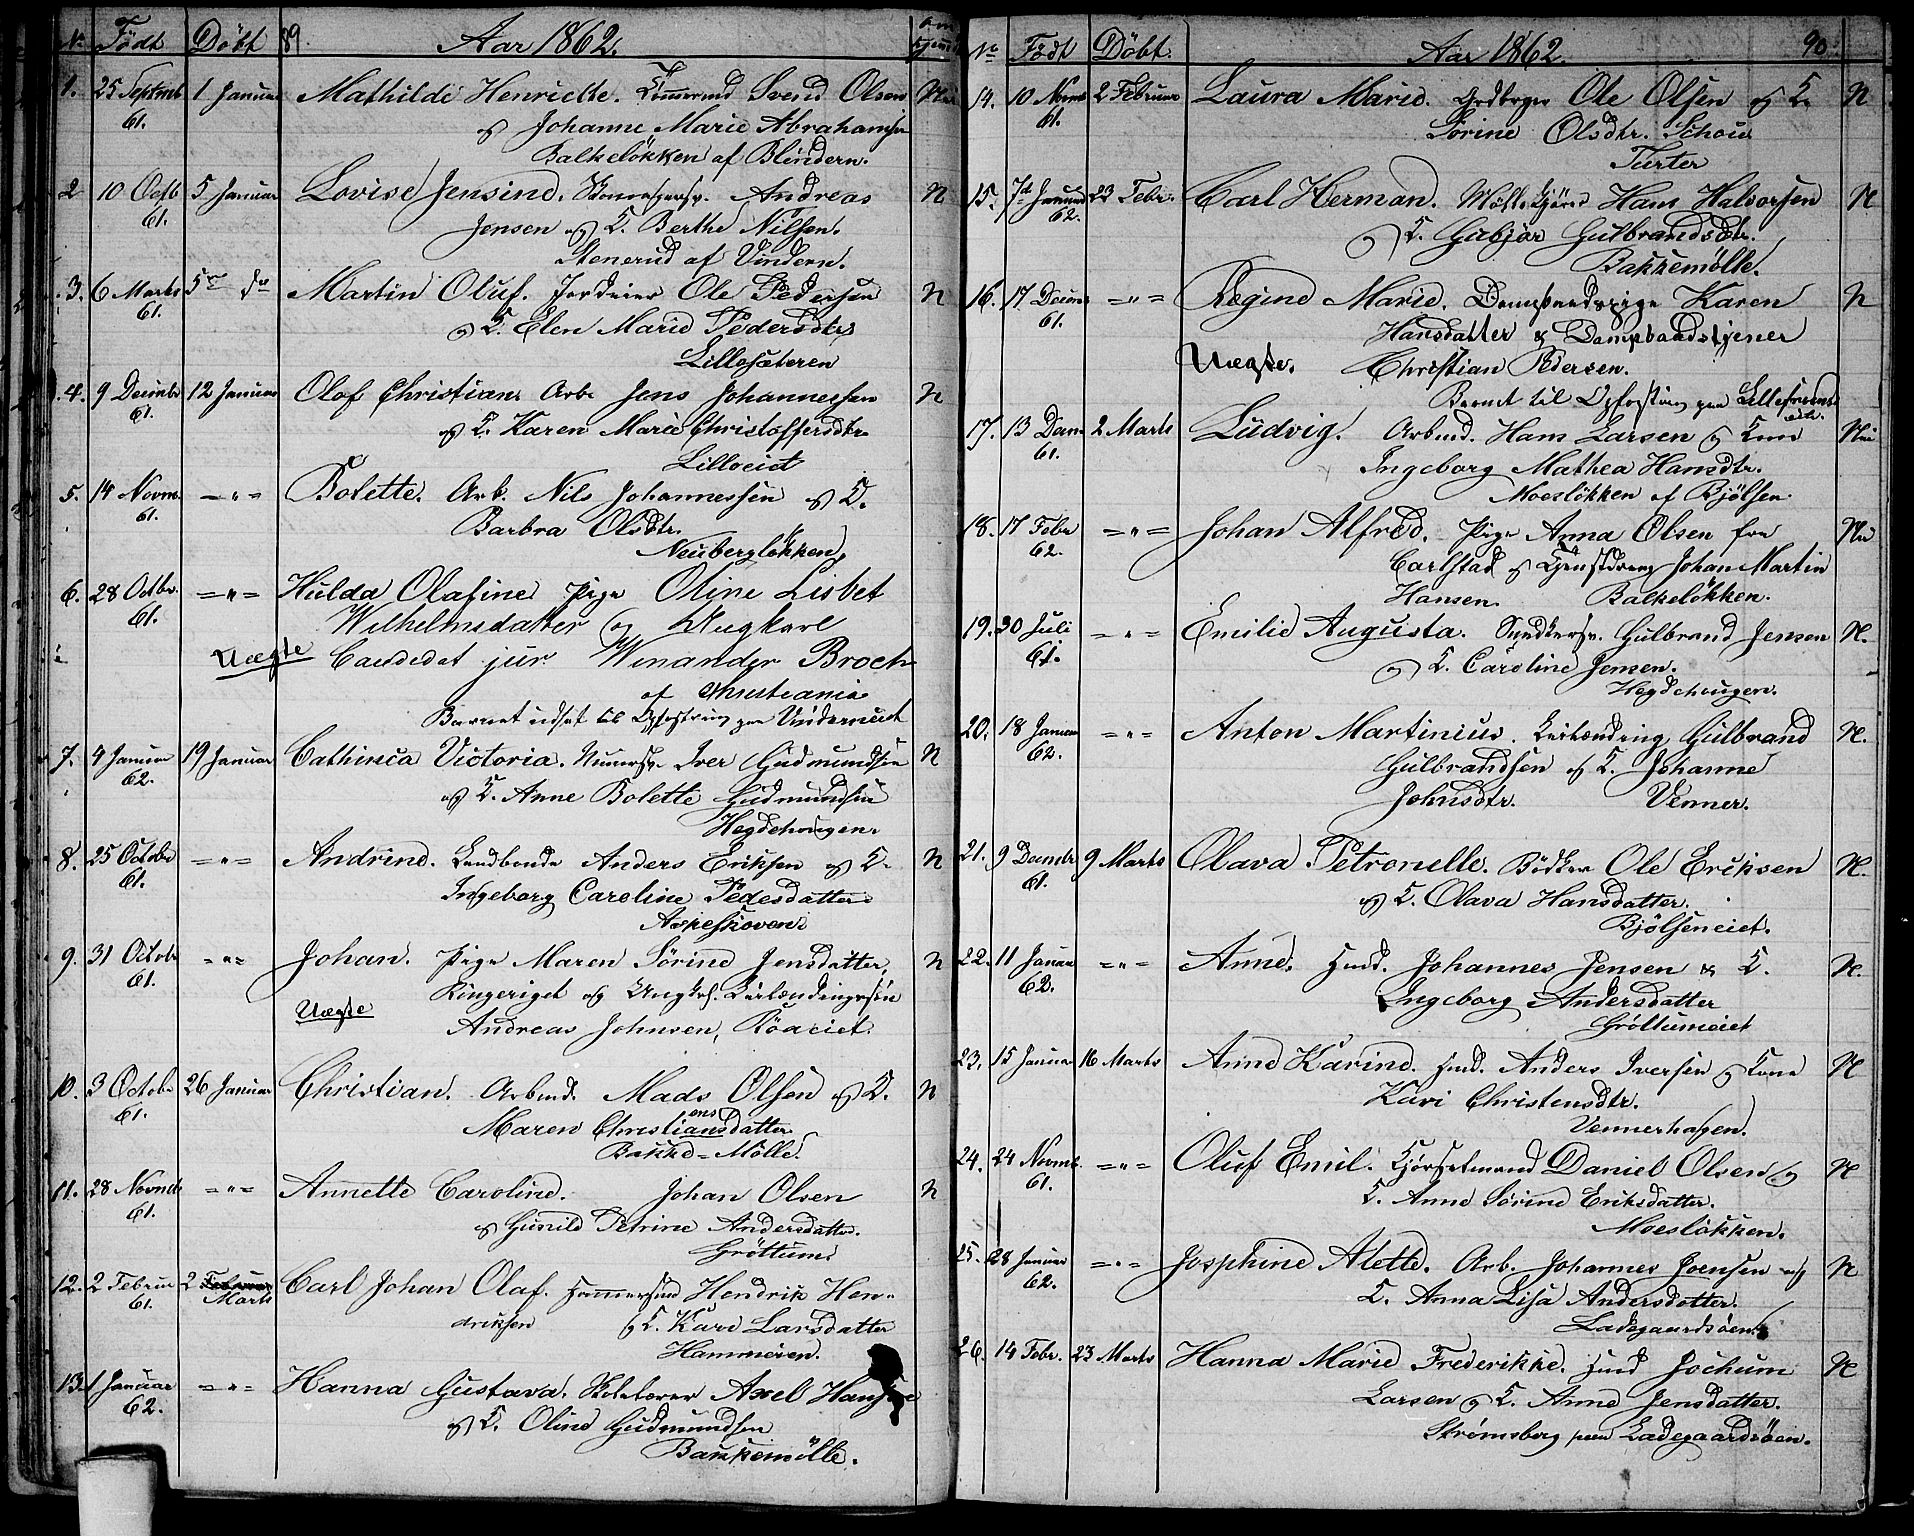 No Födt Döbt 89. Aar 1862.
1. 25 Septmb 61. 1 Januar Mathilde Henriette. Tömmermd Svend Olsen Nei
og Johanne Marie Abrahamsen
Balkeløkken af Blindern.
2 10 Octb 61. 5 Januar Lovise Jensine. Andreas N
Jensen og K. Berthe Nilsen.
Stenerud af Vindern.
3. 6 Marts 61. 5te do Martin Oluf. Jordeier Ole Pedersen N
og K. Elen Marie Pedersdtr
Lillesæteren
4. 9 Decmbr 61. 12 Januar Olaf Christian. Arb. Jens Johannessen N
og K. Karen Marie Christoffersdtr
Lilloeiet
5. 14 Novm. 61. -"- Bolette. Arb. Nils Johannessen og K.
Barbra Olsdtr.
Neuberglökken,
6. 28 Octbr. 61. -"- Hulda Olafine Pige Oline Lisbet
Wilhelmsdatter og Ungkarl
Uægte Candidat jur Winander Broch
af Christiania
Barnet udsat til Opfostring paa Vinderneiet
7. 4 Januar 62. 19 Januar Cathinca Victoria. Murersv. Iver Gudmundsen N
og K. Anne Bolette Gudmundsen
Hegdehougen.
8. 25 October 61. -"- Andrine. Landhandler Anders Eriksen og K. N
Ingeborg Caroline Pedesdatter
Askeskoven.
9. 31 Octobr 61. -"- Johan. Pige Maren Sörine Jensdatter, N
Ringeriget og Ungk.
Uægte Andreas Johnsen, Röaeiet.
10. 3 Octobr 61. 26 Januar Christian. Arbmd. Mads Olsen og K. N
Maren Christiansdatter ens
Bakke-Mölle.
11. 28 Novmb 61. -"- Annette Caroline. Johan Olsen N
og Gunild Petrine Andersdatter.
Gröttum.
12. 2 Februar 61. 2 Februar Marts Carl Johan Olaf. Hendrik Hen-
driksen og K. Kari Larsdatter
Hammeren.
13. 1 Januar 62. -"- Hanna Gustava. Skolelærer Axel Hansen
og K. Oline Gudmundsen
Bakkemölle.
No Födt Döbt. Aar 1862. 90.
14. 10 Novmb 61. 2 Februar Laura Marie. Ole Olsen og K. N
Sörine Olsdtr. Schou
Turter
15. 7d Januar 62. 23 Febr. Carl Herman. Hans Halvorsen N
og K. Gubjör Gulbrandsdtr.
Bakkemölle.
16. 17 Decmb 61. -"- Regine Marie. Karen N
Hansdatter & Dampbaadstjener
Uægte. Christian Pedersen.
Barnet til Opfostring paa
17. 13 Decm 61. 2 Marts Ludvig. Arbmd. Hans Larsen og Kone Nei
Ingeborg Mathea Hansdtr.
Moesløkken af Bjölsen.
18. 17 Febr 62. -"- Johan Alfred. Pige Anna Olsen fra Nei
Carlstad og Tjenstdreng Johan Martin
Hansen. Balkeløkken.
19. 30 Juli 61. -"- Emilie Augusta. Snedkersv. Gulbrand Jensen N.
og K. Caroline Jensen.
Hegdehougen.
20. 18 Januar 62. -"- Anton Martinius. Gulbrand N.
Gulbrandsen og K. Johanne
Johnsdtr. Venner.
21. 9 Decmbr 61. 9 Marts Olava Petronelle. Bödker Ole Eriksen N.
og K. Olava Hansdatter.
Bjölseneiet.
22. 11 Januar 62. -"- Anne. Husmd. Johannes Jensen & K. N.
Ingeborg Andersdatter
Gröttumeiet
23. 15 Januar 16 Marts Anne Karine. Husmd. Anders Iversen og Kone N
Kari Christensdtr.
Vennerhagen.
24. 24 Novmb. 61. -"- Oluf Emil. Daniel Olsen og N
K. Anne Sörine Eriksdatter.
Moesløkken.
25. 28 Januar 62. -"- Josephine Alette. Arb. Johannes Joensen og N
K. Anna Lisa Andersdatter.
Ladegaardsöen.
26. 14 Febr. 23 Marts Hanna Marie Frederikke. Husmd Jochum N
Larsen og K. Anne Jensdatter.
Strömsberg paa Ladegaardsöen.